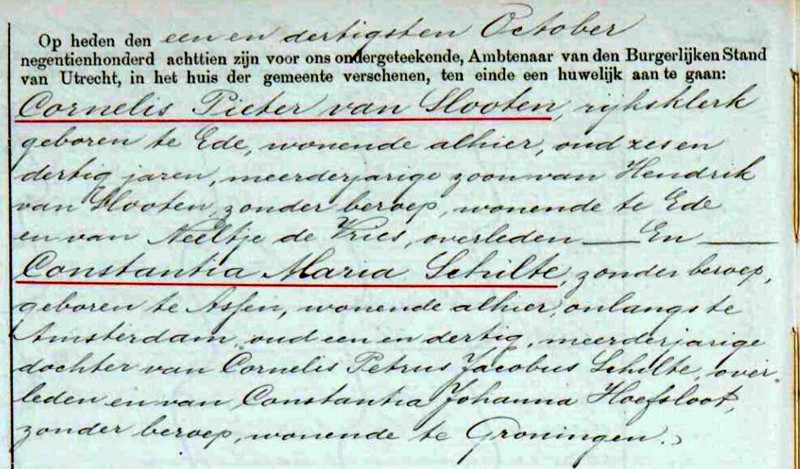 Op heden den een en dertigsten October
negentienhonderd achttien zijn voor ons ondergeteekende, Ambtenaar van den Burgerlijken Stand
van Utrecht, in het huis der gemeente verschenen, ten einde een huwelijk aan te gaan:
Cornelis Pieter van Slooten, rijksklerk
geboren te Ede, wonende alhier, oud zes en
dertig jaren, meerderjarige zoon van Hendrik
van Slooten, zonder beroep, wonende te Ede
en van Neeltje de Vries, overleden — En —
Constantia Maria Schilte, zonder beroep,
geboren te Assen, wonende alhier, onlangs te
Amsterdam, oud een en dertig, meerderjarige
dochter van Cornelis Petrus Jacobus Schilte, over
leden en van Constantia Johanna Hoefsloot,
zonder beroep, wonende te Groningen.